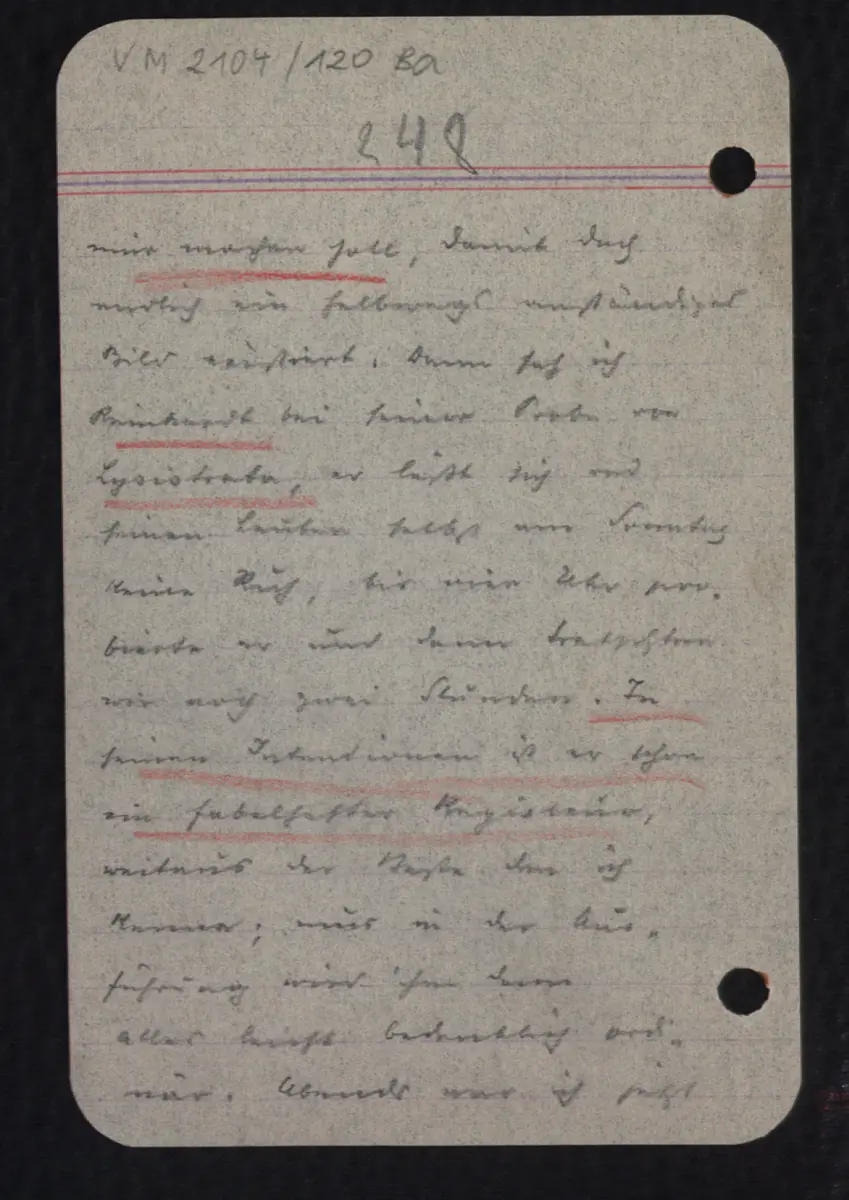 VM 2104/120 Ba
248
mir machen soll, damit doch
endlich ein halbwegs anständiges
Bild existiert. Dann sah ich
Reinhardt bei seiner Probe von
Lysistrata, er läßt sich und
seinen Leuten selbst am Sonntag
keine Ruh, bis vier Uhr pro-
bierte er und dann tratschten
wir noch zwei Stunden. In
seinen Intentionen ist er schon
ein fabelhafter Regisseur,
weitaus der Beste den ich
kenne; nur in der Aus-
führung wird ihm dann
alles leicht bedenklich ordi-
när. Abends war ich jetzt